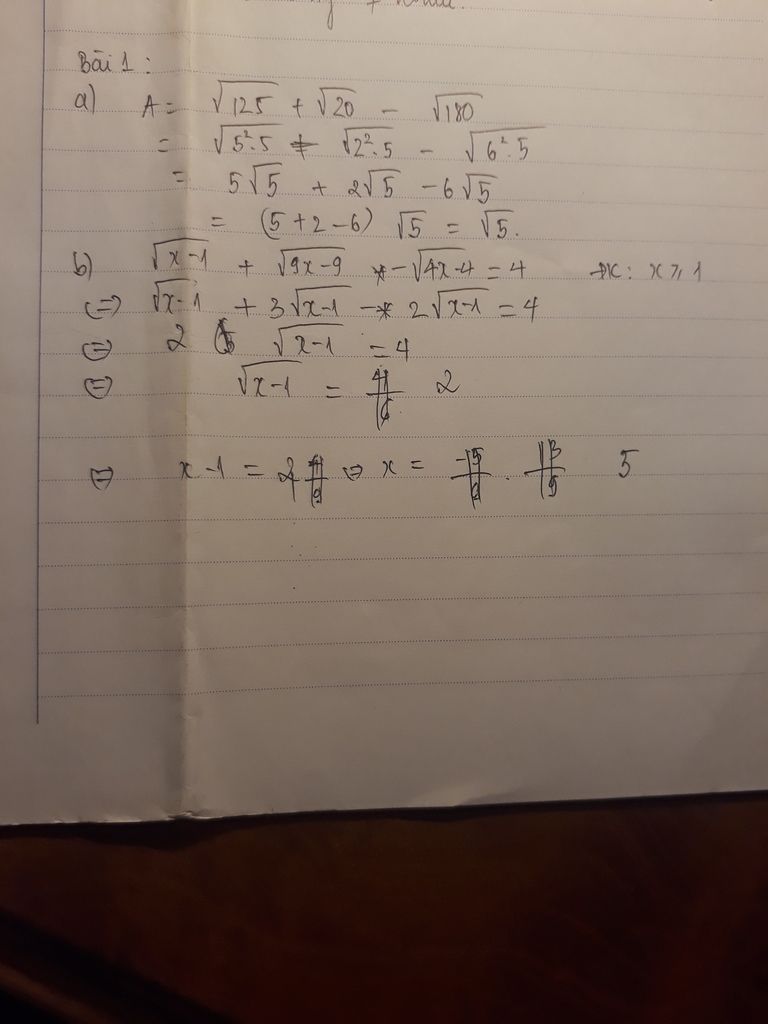 Bài 1 :
a) A = √125 + √20 - √180
= √5².5 + √2².5 - √6².5
= 5√5 + 2√5 - 6√5
= (5+2-6) √5 = √5.
b) √x-1 + √9x-9 - √4x-4 = 4 ĐK: x ≥ 1
⇔ √x-1 + 3√x-1 - 2√x-1 = 4
⇔ 2 √x-1 = 4
⇔ √x-1 = 2
⇔ x-1 = 4 ⇔ x = 5